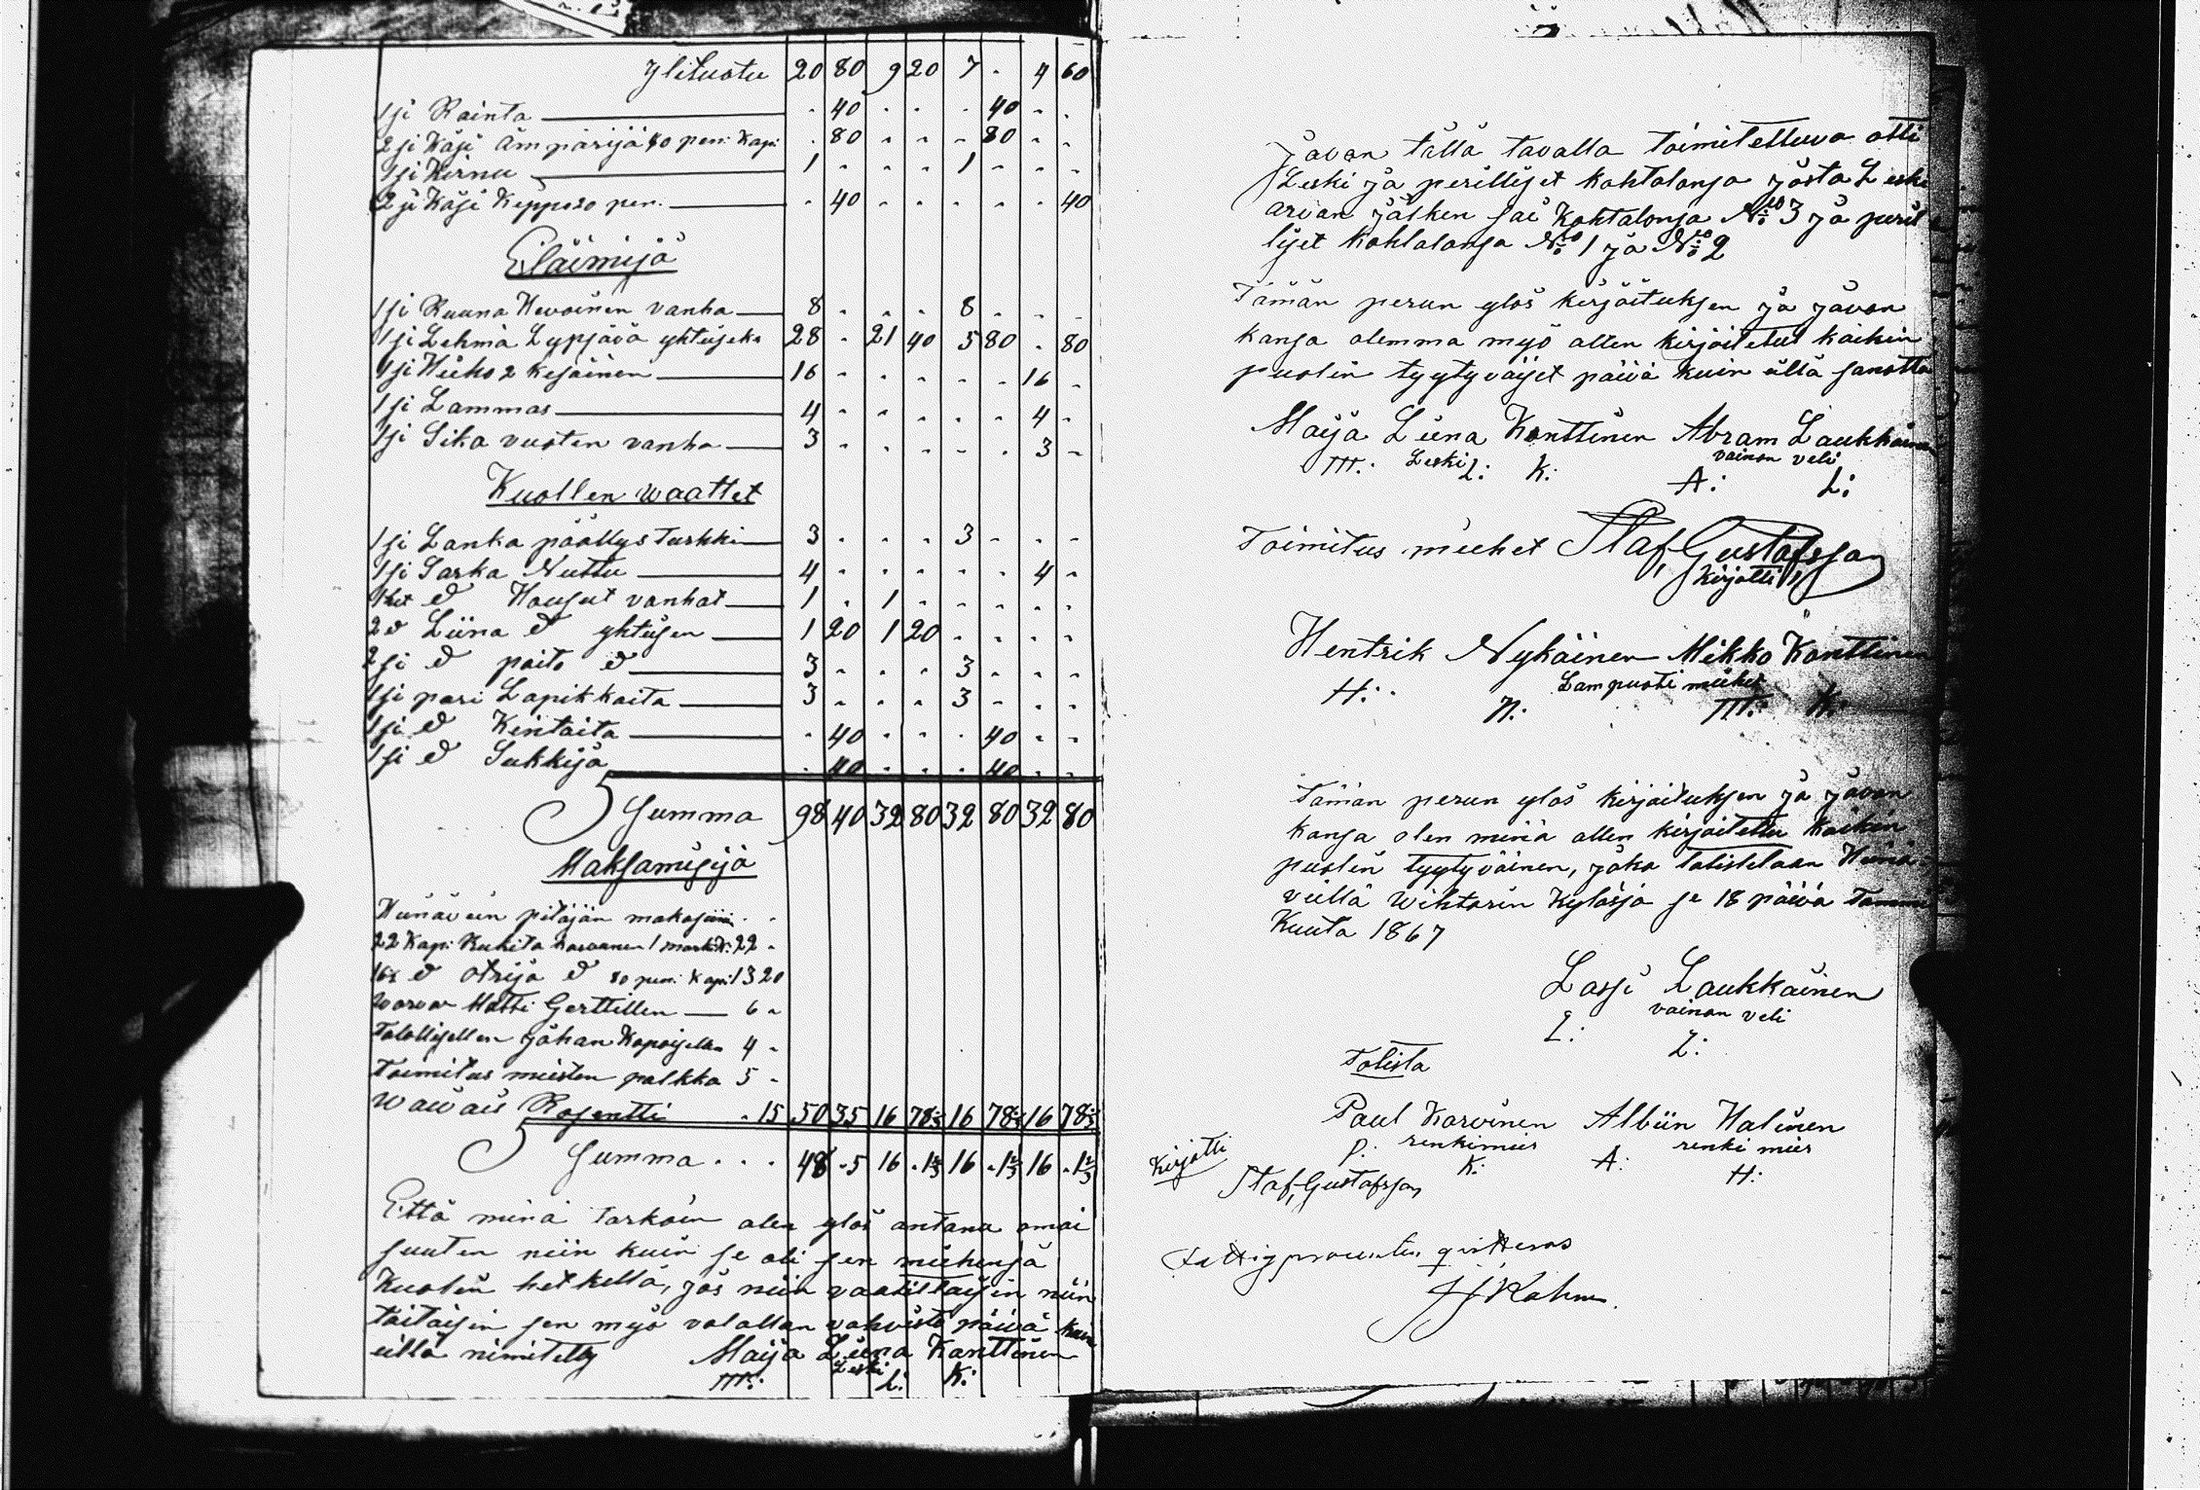 Ylituotu 20 80 9 20 7 - 4 60
1 si Rainta - 40 - - - 40 - -
2 si Käsi Ämpärijä 40 pen: Kap: - 80 - - - 80 - -
1 si Kirnu 1 - - - 1 - - -
2 si Käsi Keppo 20 pen. - 40 - - - - - 40
Eläimijä
1 si Ruuna Hevoinen vanha 8 - - - 8 - - -
1 si Lehmä Lypsävä yhteiseks 28 - 21 40 5 80 - 80
1 si Hieho 2 kesäinen 16 - - - - - 16 -
1 si Lammas 4 - - - - - 4 -
1 si Sika vuoten vanha 3 - - - - - 3 -
Kuollen waattet
1 si Lanka päällys turkki 3 - - - 3 - - -
1 si Sarka Nuttu 4 - - - - - 4 -
1 ket d Housut vanhat 1 - 1 - - - - -
2 d Liina d yhteisen 1 20 1 20 - - - -
2 si d paito d 3 - - - 3 - - -
1 si pari Lapikkaita 3 - - - 3 - - -
1 si d Kintaita - 40 - - - 40 - -
1 si d Sukkija - 40 - - - 40 - -
Summa 98 40 32 80 32 80 32 80
Maksamisija
Hiinävein pitäjän makasiini - -
22 Kap: Ruhita 1 mark: K: 22 -
16½ d otrija d 80 pen: Kap: 13 20
Matti Gerttillen 6 -
Talollisellen Johan 4 -
Toimitus miesten palkka 5 -
Waivais Rosentti - 15 50 35 16 78⅓ 16 78⅓ 16 78⅓
Summa . . . 48 - 5 16 - 1⅔ 16 - 1⅔ 16 - 1⅔
Että minä tarkoin olen ylös antanu omai
suuten niin kuin se oli sen miehensä
Kuolin hetkellä, jos niin vaatittaisin niin
taitaisin sen myö valallan vahvista päivä kuin
eillä nimitetty Maija Liina Konttinen
Leski
M: L: K:
Javon tällä tavalla toimitettuvo otti
Leski ja perilliset kohtalonsa josta Leski
arvan jälken sai Kohtalonsa N:o 3 ja peril
liset kohtalonsa N:o 1 ja N:o 2
Tämän perun ylös kirjoituksen ja javon
kansa olemma myö allen kirjoitetut kaikin
puolin tyytyväiset päivä kuin ällä sanottu
Maija Liina Konttinen Abram Laukkainen
Leski vainan veli
M: L: K: A: L:
Toimitus miehet Staf, Gustafsson
Kirjotti
Hentrik Nykäinen Mikko Konttinen
Lampuoti miehet
H: N: M: K:
Tämän perun ylös kirjoituksen ja javon
kansa olen minä allen kirjoitettu kaikin
puolin tyytyväinen, joka totistetaan Hiinä-
veillä Wihtarin Kyläsjä se 18 päivä Tammi
Kuuta 1867
Lassi Laukkainen
vainan veli
L: L:
Totista
Paul Karvinen Albiin Halinen
renkimies renki mies
P. K: A: H:
Kirjotti
Staf, Gustafsson
Fattigprocenten qvitteras